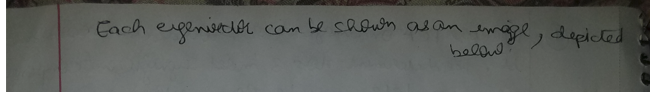 Each eigenvector can be shown as an image, depicted
below